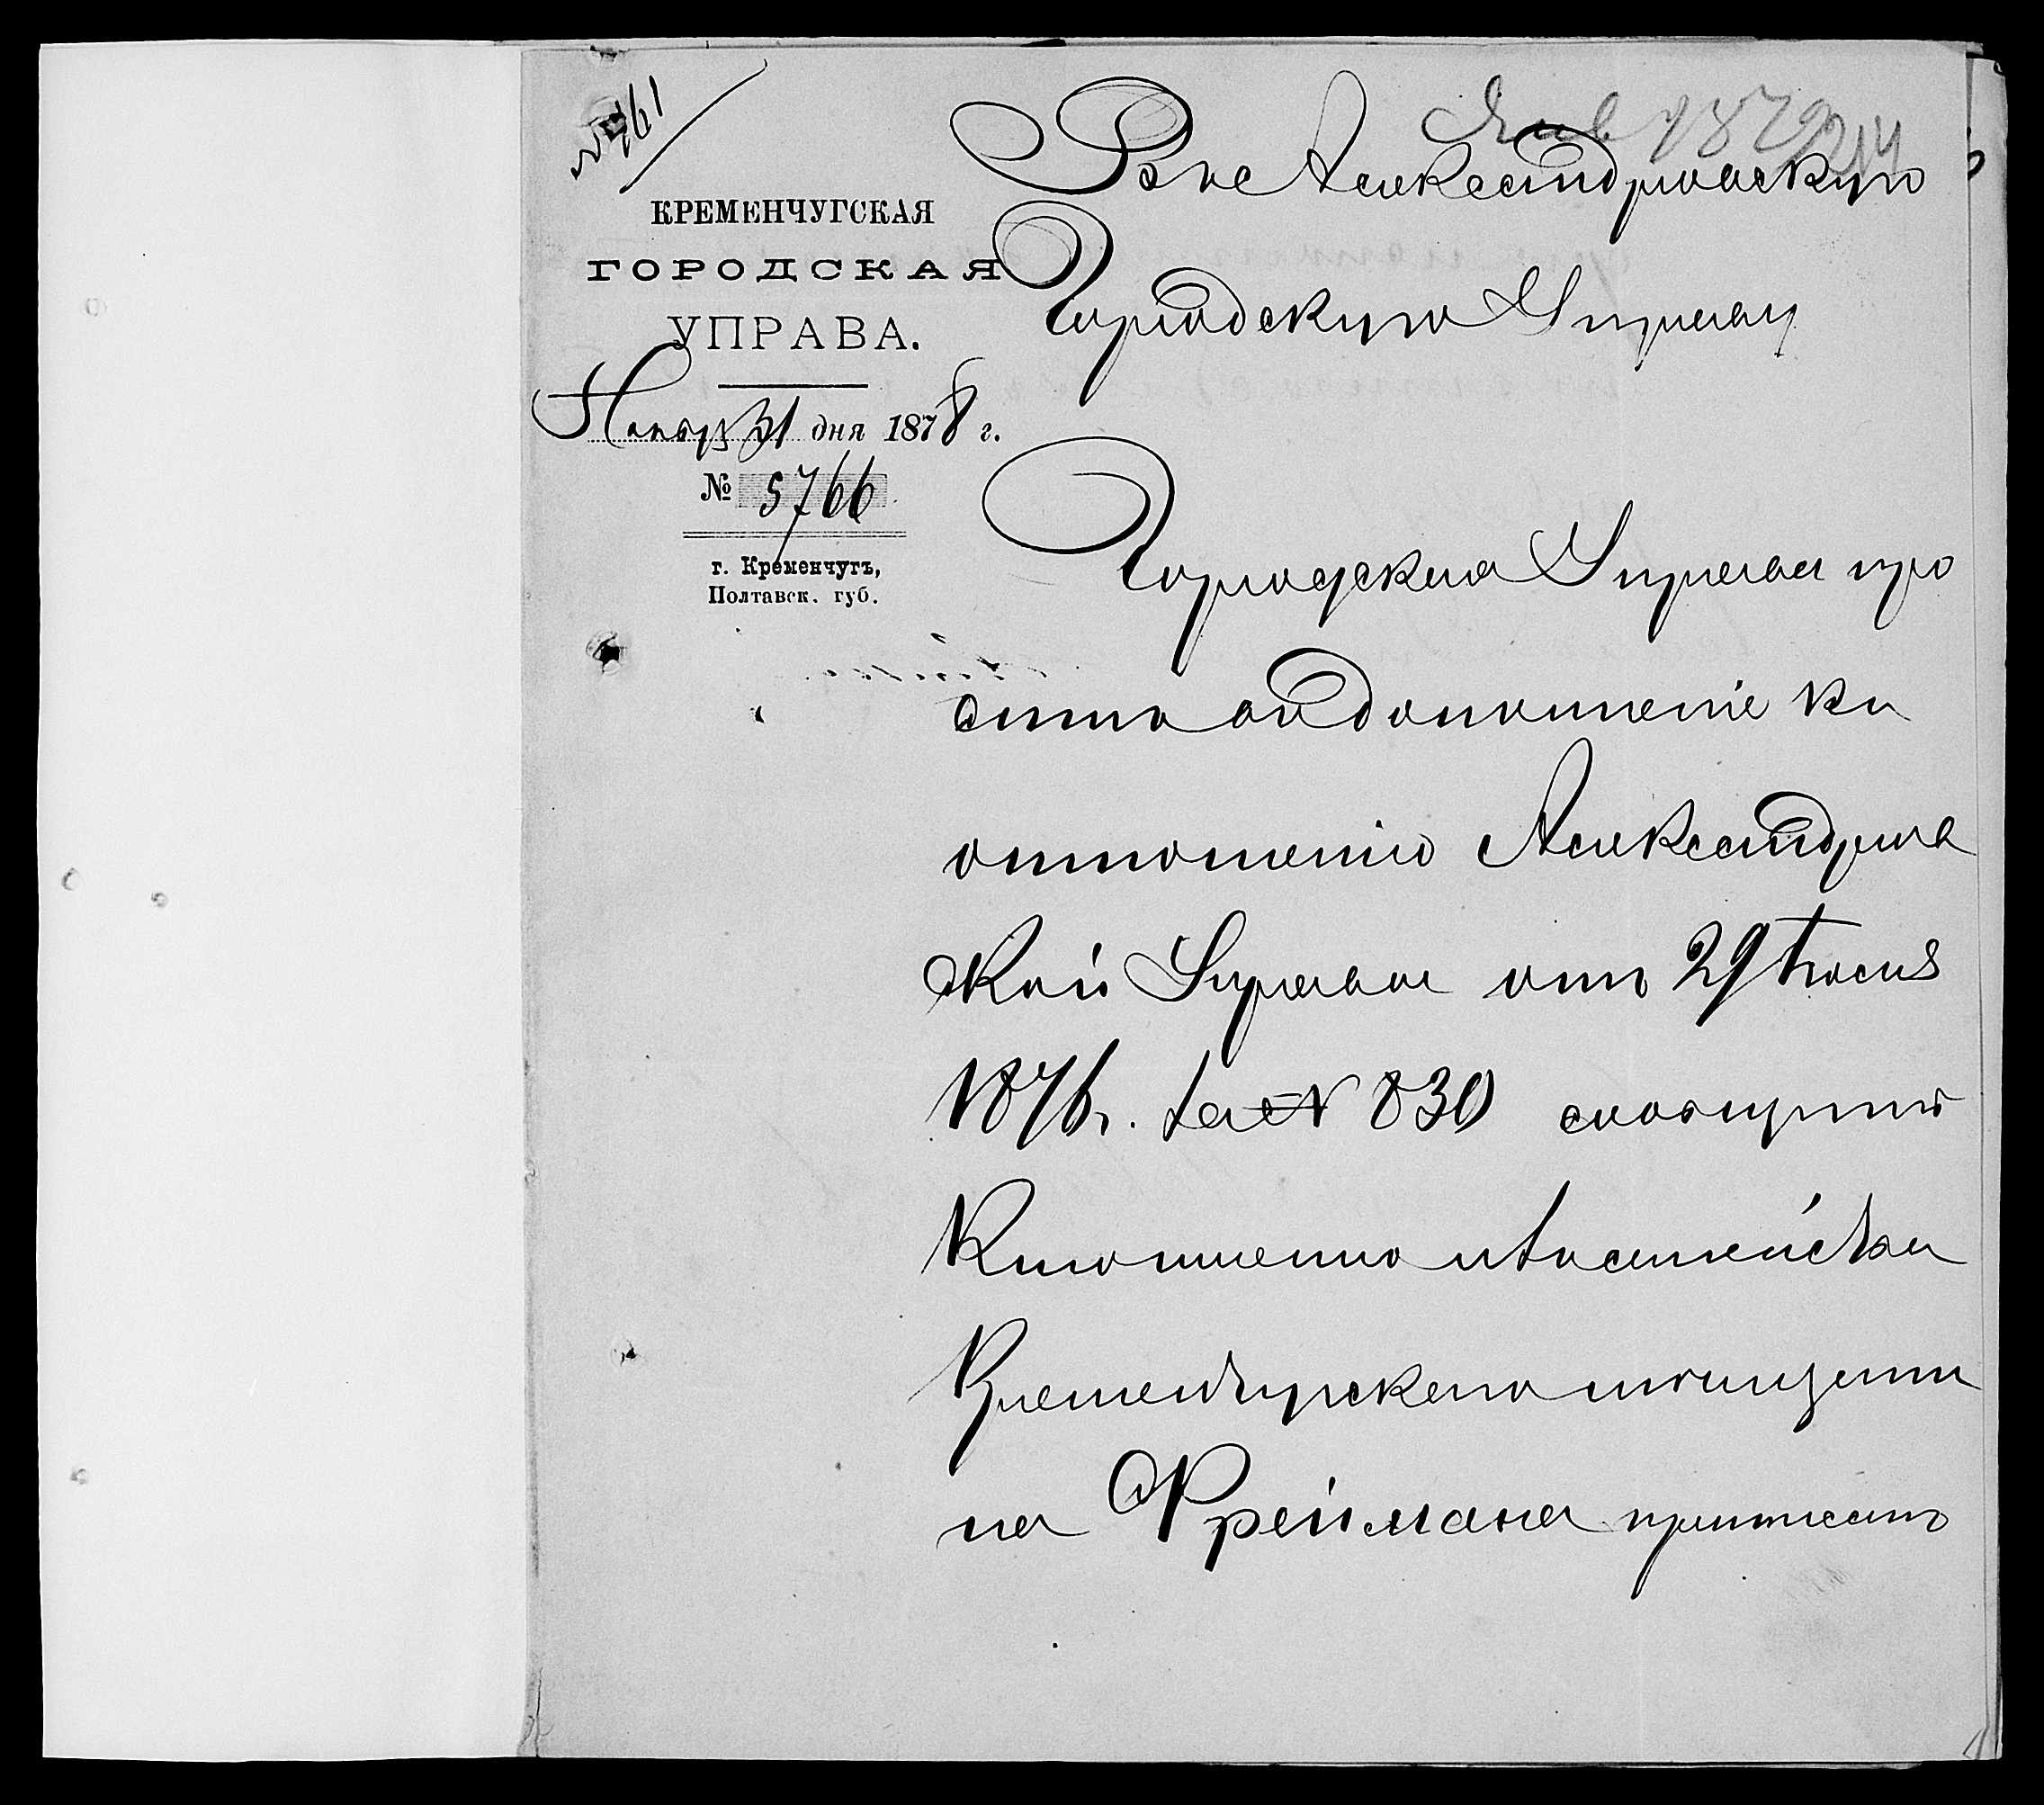 № 461
Янв 1879 214
КРЕМЕНЧУГСКАЯ
ГОРОДСКАЯ
УПРАВА.
Ноября 31 дня 1878 г.
№ 5766
г. Кременчугъ,
Полтавск. губ.
Въ Александровскую
Городскую Управу
Городская Управа про
ситъ въ дополненіе къ
отношенію Александров
ской Управы отъ 29 Іюля
1876 г. за № 830 сообщить
къ именно посемейства
Кременчугскаго мѣщани
на Фреймана приписанъ